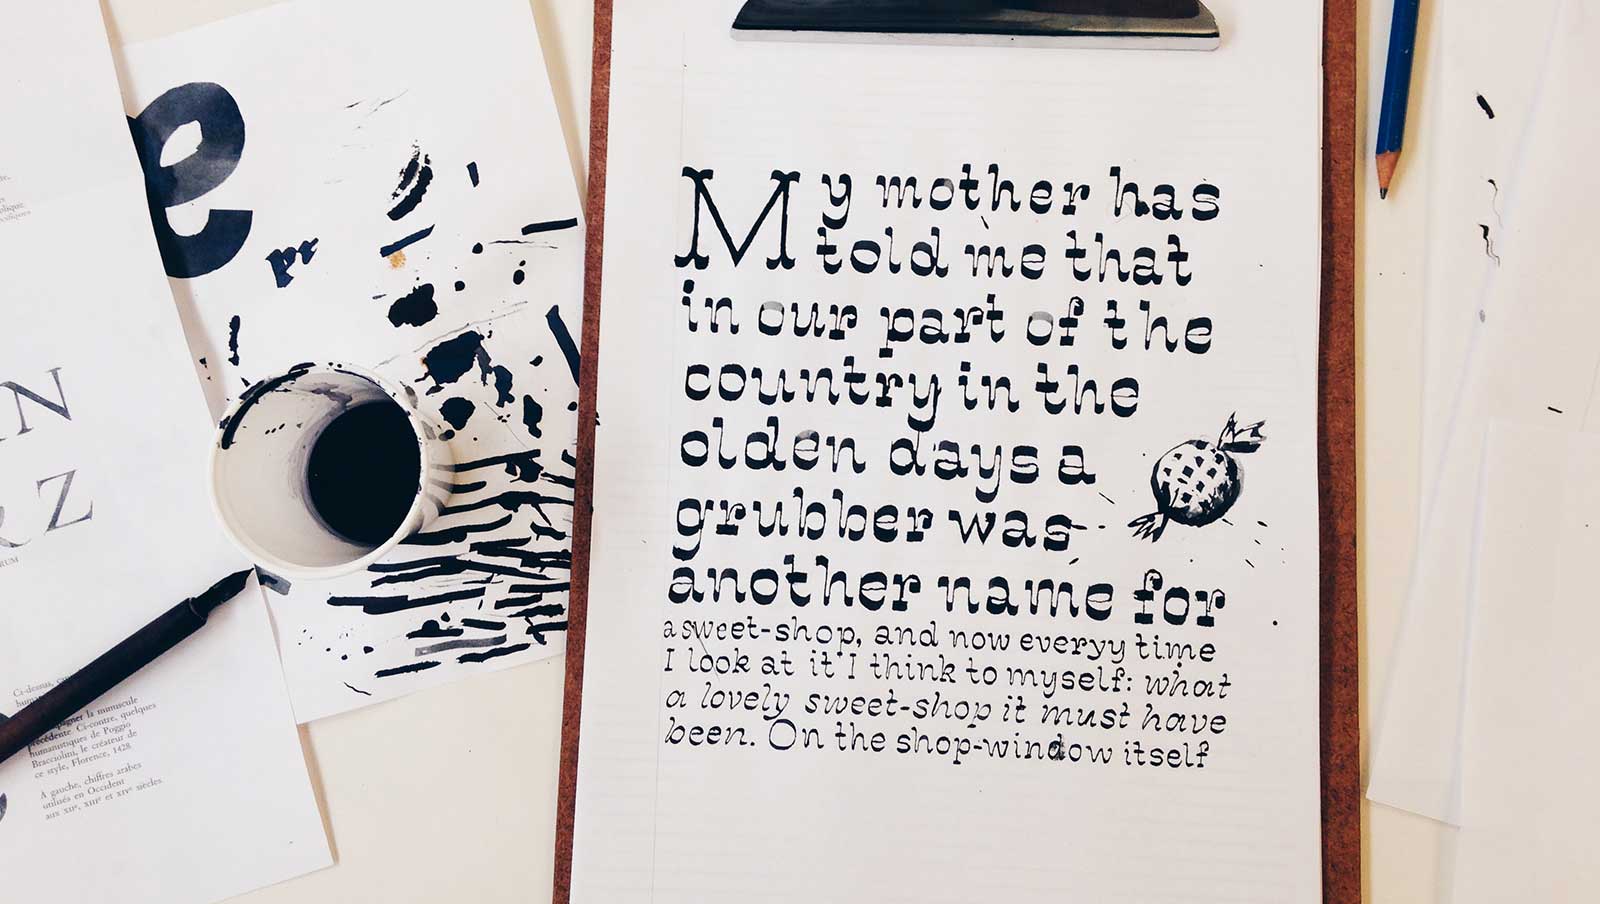 e
N
Z
RUM
Ci-dessus,
la minuscule
précédente Ci-contre, quelques
humanistiques de Poggio
Bracciolini, le créateur de
ce style, Florence, 1428.
À gauche, chiffres arabes
utilisés en Occident
aux XIIᵉ, XIIIᵉ et XIVᵉ siècles.
My mother has
told me that
in our part of the
country in the
olden days a
grubber was
another name for
a sweet-shop, and now everyy time
I look at it I think to myself: what
a lovely sweet-shop it must have
been. On the shop-window itself